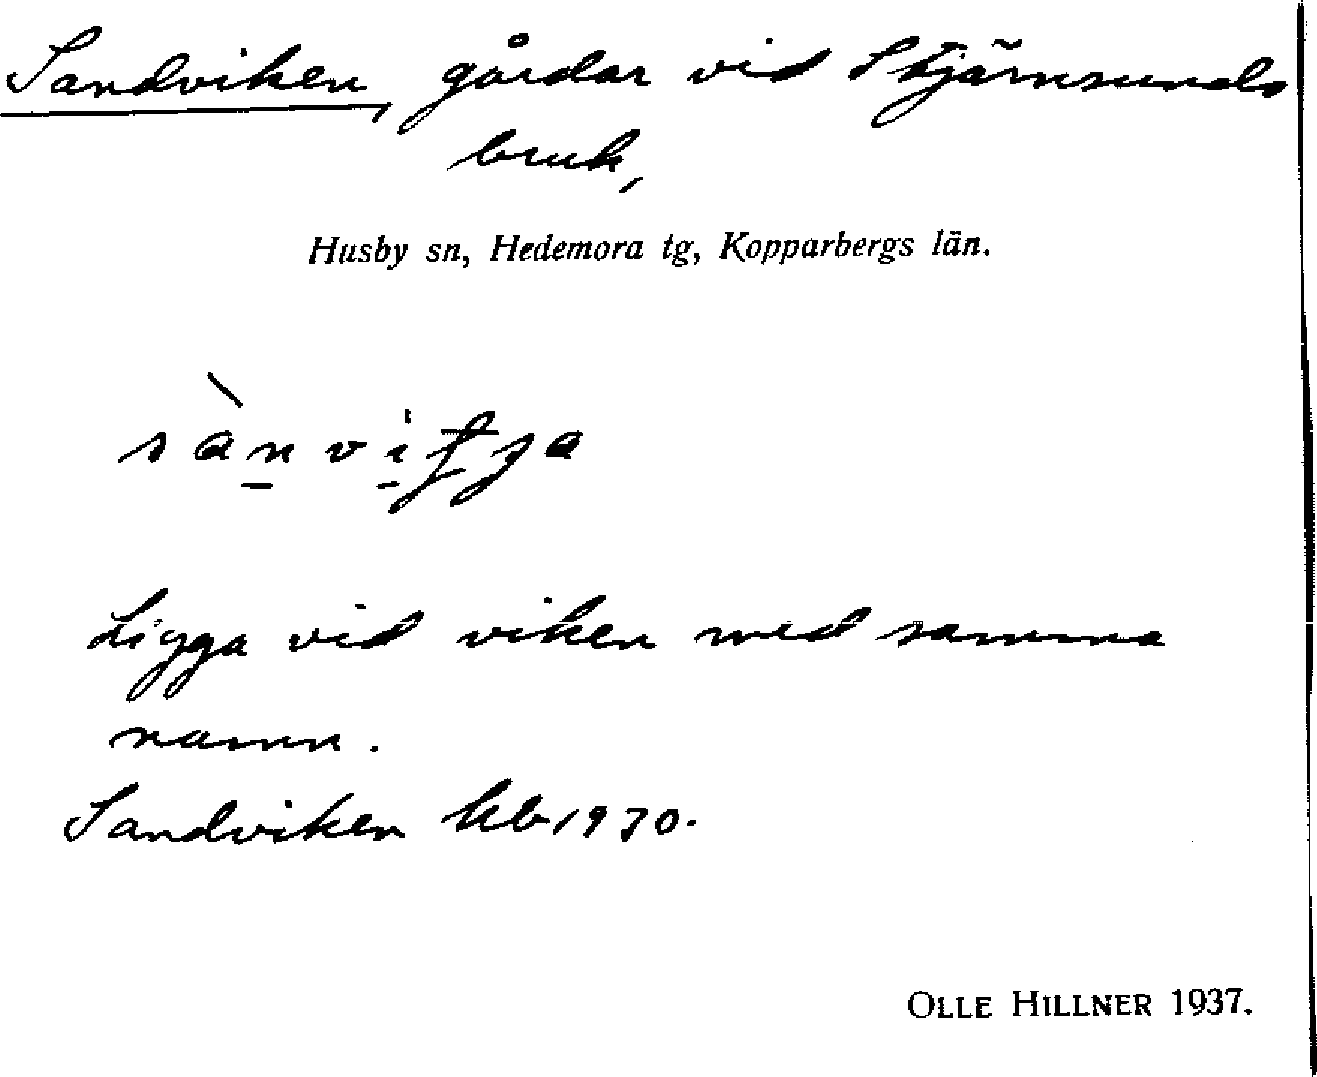 Sandviken, gårdar vid Stjärnsunds
bruk,
Husby sn, Hedemora tg, Kopparbergs län.
Ligga vid viken med samma
namn.
Sandviken kb 1930.
OLLE HILLNER 1937.